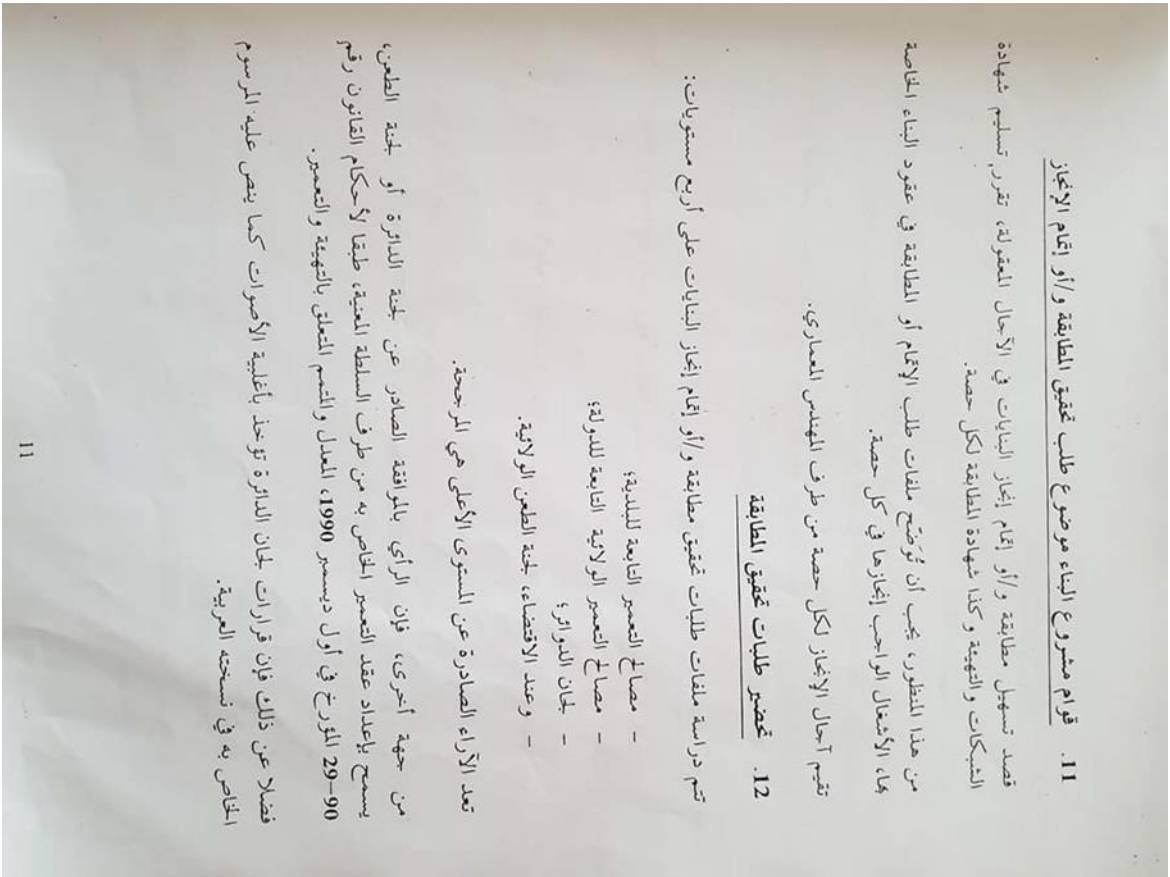 11. قوام مشروع البناء موضوع طلب تحقيق المطابقة و/أو إتمام الإنجاز
قصد تسهيل مطابقة و/أو إتمام إنجاز البنايات في الآجال المعقولة، تقرر تسليم شهادة
الشبكات والتهيئة وكذا شهادة المطابقة لكل حصة.
من هذا المنظور، يجب أن تُوَضح ملفات طلب الإتمام أو المطابقة في عقود البناء الخاصة
بها، الأشغال الواجب إنجازها في كل حصة.
تقيم آجال الإنجاز لكل حصة من طرف المهندس المعماري.
12. تحضير طلبات تحقيق المطابقة
تتم دراسة ملفات طلبات تحقيق مطابقة و/أو إتمام إنجاز البنايات على أربع مستويات:
- مصالح التعمير التابعة للبلدية؛
- مصالح التعمير الولائية التابعة للدولة؛
- لجان الدوائر؛
- وعند الاقتضاء، لجنة الطعن الولائية.
تعد الآراء الصادرة عن المستوى الأعلى هي المرجحة.
من جهة أخرى، فإن الرأي بالموافقة الصادر عن لجنة الدائرة أو لجنة الطعن،
يسمح بإعداد عقد التعمير الخاص به من طرف السلطة المعنية، طبقا لأحكام القانون رقم
90-29 المؤرخ في أول ديسمبر 1990، المعدل والمتمم المتعلق بالتهيئة والتعمير.
فضلا عن ذلك فإن قرارات لجان الدائرة تؤخذ بأغلبية الأصوات كما ينص عليه المرسوم
الخاص به في نسخته العربية.
11